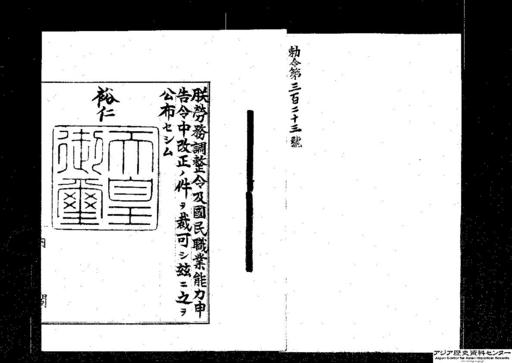 勅令第三百二十三號
朕勞務調整令及國民職業能力申
告令中改正ノ件ヲ裁可シ玆ニ之ヲ
公布セシム
裕仁
天皇
御璽
内閣
アジア歴史資料センター
Japan Center for Asian Historical Records